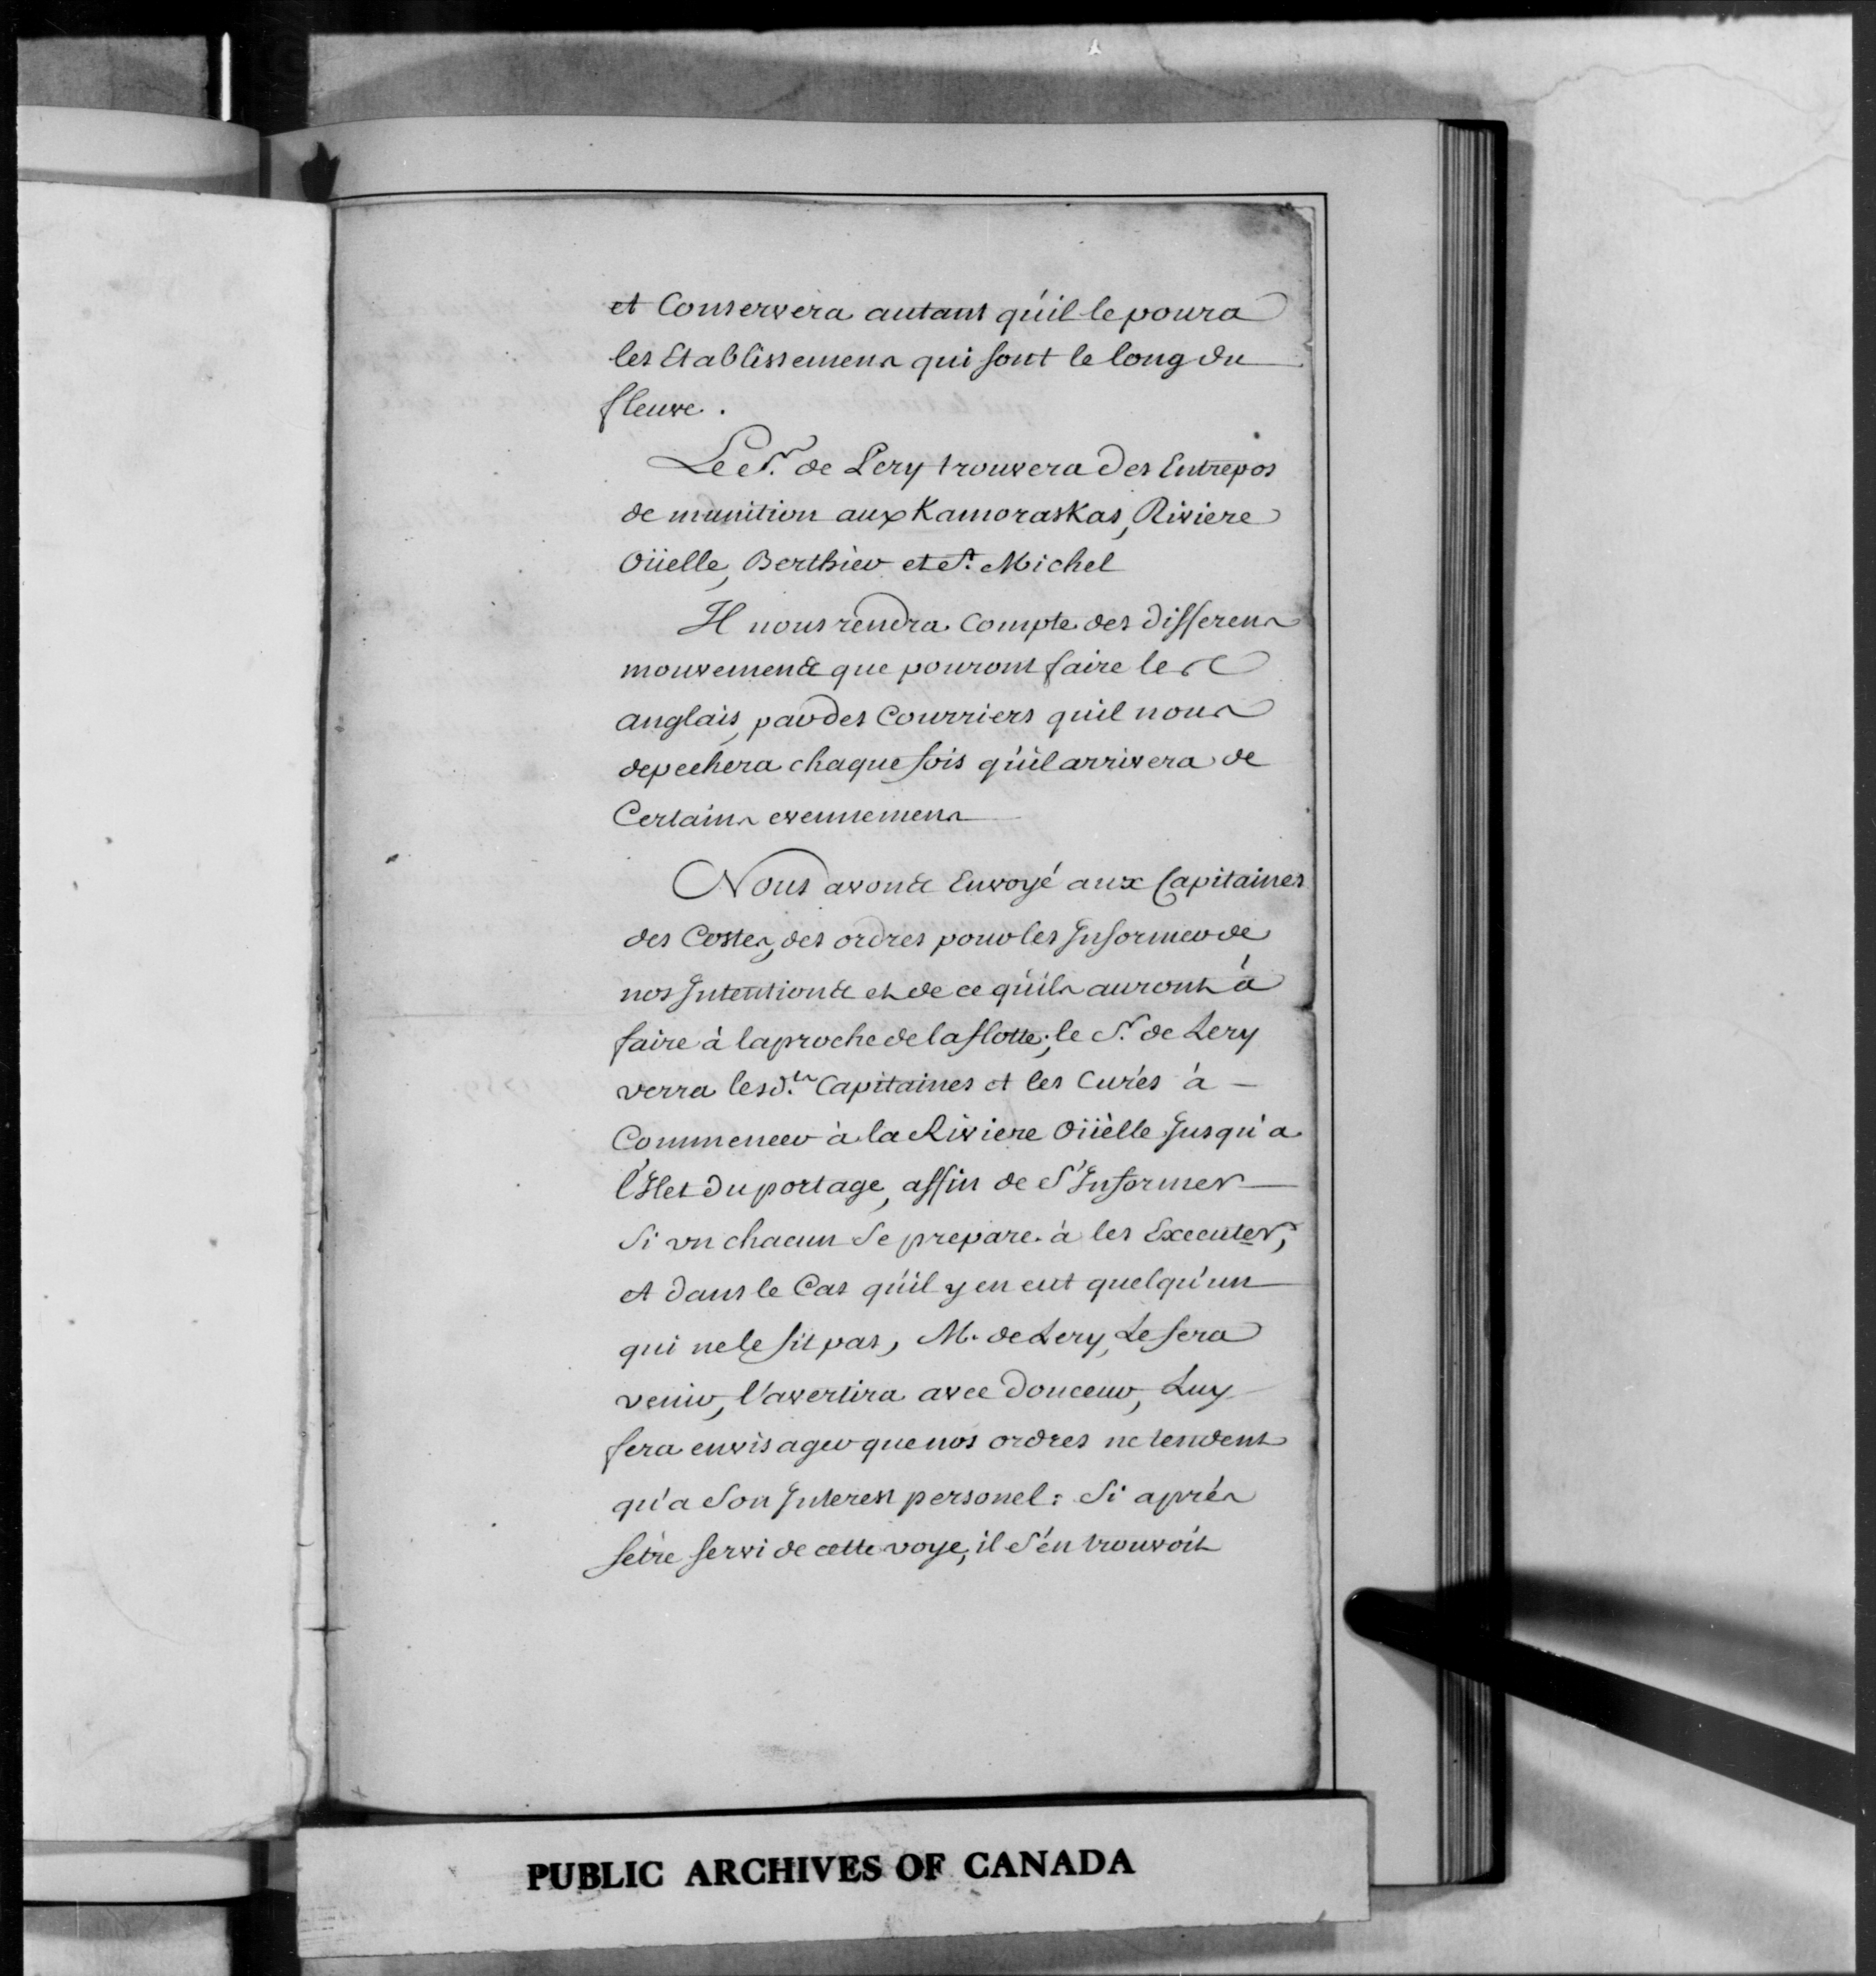 et Conservera autant qu'il le poura
les Etablissemens qui sont le long du
fleuve.
Le Sr. de Lery trouvera des Entrepos
de munition aux Kamoraskas, Riviere
Oüelle, Berthier et St. Michel
Il nous rendra Compte des differens
mouvements que pouront faire les
anglais, par des Courriers qu'il nous
depechera chaque fois qu'il arrivera de
Certains evennemens
Nous avons Envoyé aux Capitaines
des Costes, des ordres pour les Informer de
nos Intentions et de ce qu'ils auront à
faire à laproche de la flotte; le Sr. de Lery
verra lesd.ts Capitaines et les Curés à
Commencer à la Riviere Oüelle Jusqu'a
l'Islet du portage, affin de S'Informer
Si un chacun Se prepare à les Executer;
et dans le Cas qu'il y en eut quelqu'un
qui ne le fit pas, M. de Lery, Le fera
venir, l'avertira avec douceur, Luy
fera envisager que nos ordres ne tendent
qu'a Son Interest personel: Si aprés
s'etre servi de cette voye, il S'en trouvoit
PUBLIC ARCHIVES OF CANADA